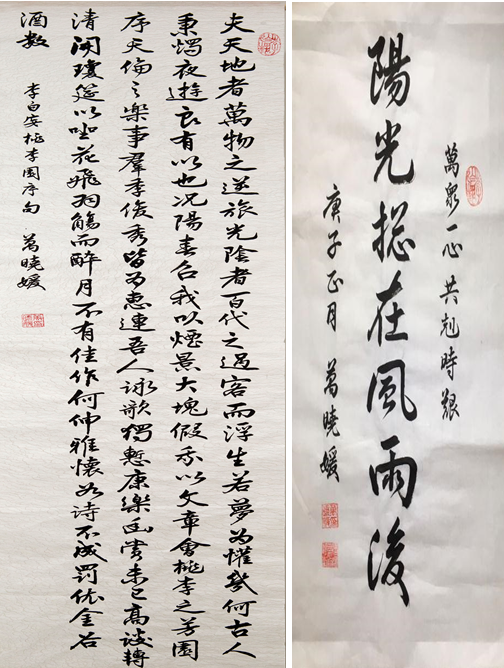 夫天地者萬物之逆旅光陰者百代之過客而浮生若夢為懽幾何古人
秉燭夜遊良有以也況陽春召我以煙景大塊假我以文章會桃李之芳園
序天倫之樂事羣季俊秀皆為惠連吾人詠歌獨慙康樂幽賞未已高談轉
清開瓊筵以坐花飛羽觴而醉月不有佳作何伸雅懷如詩不成罰依金谷
酒數
李白宴桃李園序句 萬曉媛
萬眾一心共剋時艱
陽光總在風雨後
庚子正月 萬曉媛